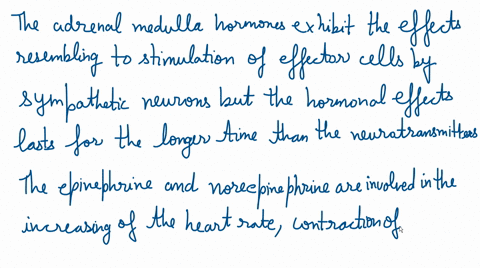 The adrenal medulla hormones exhibit the effects
resembling to stimulation of effector cells by
sympathetic neurons but the hormonal effects
lasts for the longer time than the neuratransmitters
The epinephrine and norecpinephrine are involved in the
increasing of the heart rate, contraction of